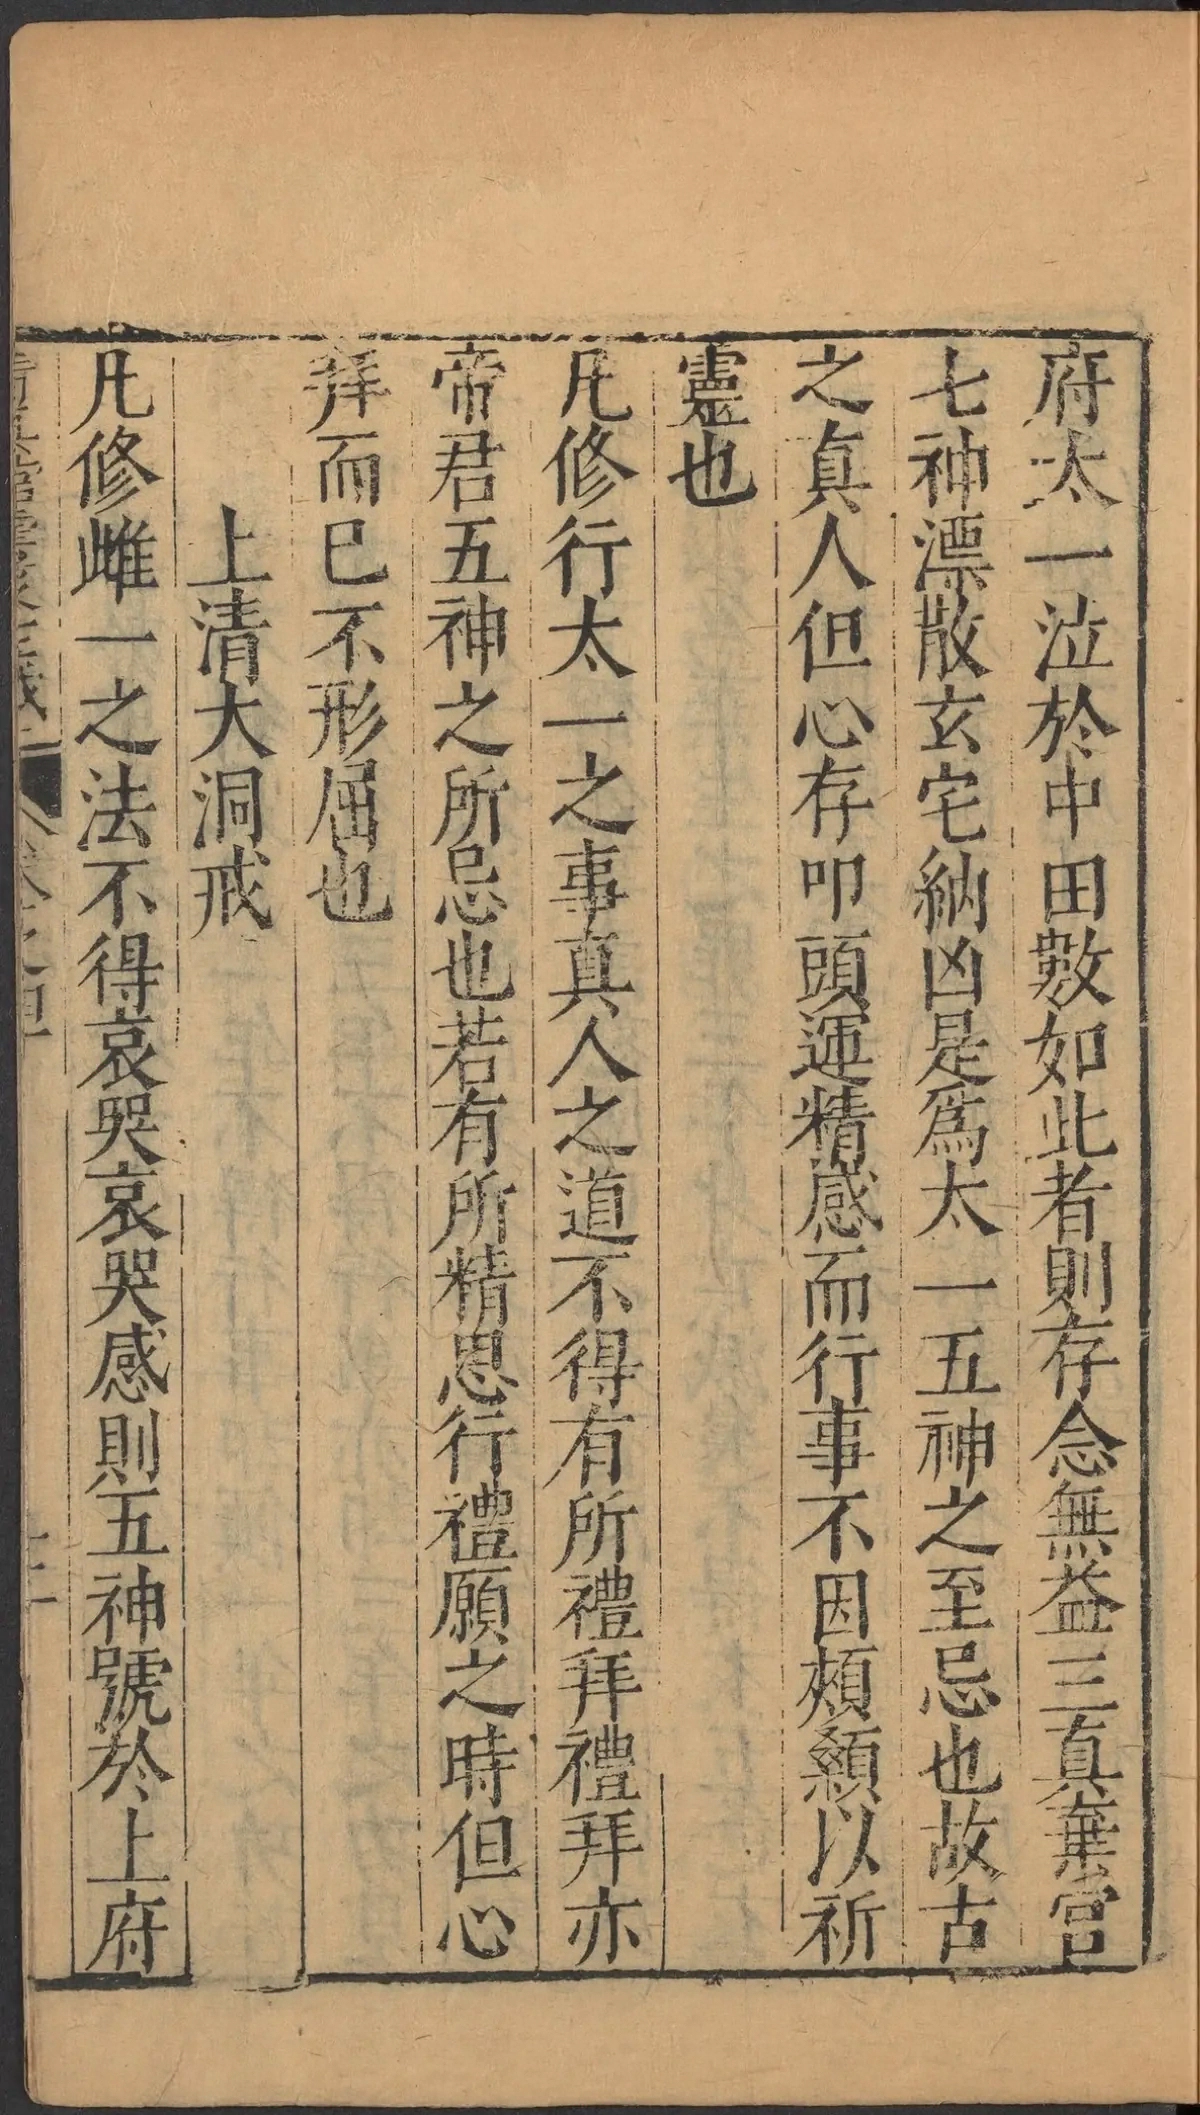 府太一泣於中田數如此者則存念無益三真棄宫
七神漂散玄宅納凶是爲太一五神之至忌也故古
之真人但心存叩頭運精感而行事不因頰顙以祈
靈也
凡修行太一之事真人之道不得有所禮拜禮拜亦
帝君五神之所忌也若有所精思行禮願之時但心
拜而已不形屈也
上清大洞戒
凡修雌一之法不得哀哭哀哭感則五神號於上府